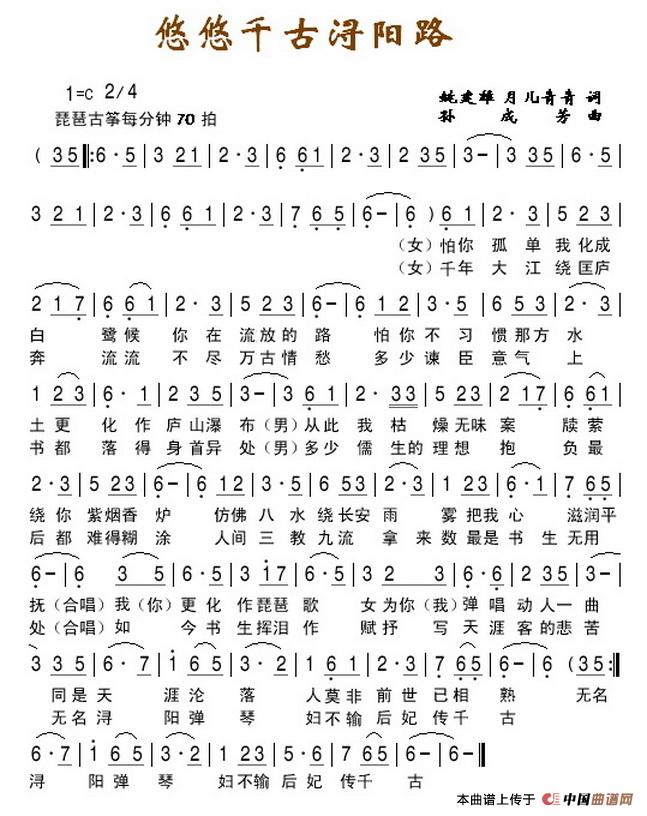 悠悠千古浔阳路
1=C 2/4
姚建雄 月儿青青 词
琵琶古筝每分钟 70 拍
孙 成 芳 曲
( 3 5 ‖: 6 · 5 | 3 2 1 | 2 · 3 | 6 6 1 | 2 · 3 | 2 3 5 | 3 – | 3 3 5 | 6 · 5 |
3 2 1 | 2 · 3 | 6 6 1 | 2 · 3 | 7 6 5 | 6 – | 6 ) 6 1 | 2 · 3 | 5 2 3 |
（女）怕你 孤 单 我 化成
（女）千年 大 江 绕 匡庐
2 1 7 | 6 6 1 | 2 · 3 | 5 2 3 | 6 – | 6 1 2 | 3 · 5 | 6 5 3 | 2 · 3 |
白 鹭候 你 在 流放的 路 怕你 不 习 惯那方 水
奔 流流 不 尽 万古情 愁 多少 谏 臣 意气 上
1 2 3 | 6 · 1 | 2 2 3 | 3 – | 3 6 1 | 2 · 3 3 | 5 2 3 | 2 1 7 | 6 6 1 |
土更 化 作 庐山瀑 布（男）从此 我 枯 燥无味 案 牍萦
书都 落 得 身首异 处（男）多少 儒 生的 理想 抱 负最
2 · 3 | 5 2 3 | 6 – | 6 1 2 | 3 · 5 | 6 5 3 | 2 · 3 | 6 · 1 | 7 6 5 |
绕你 紫烟香 炉 仿佛 八 水 绕长安 雨 雾 把我 心 滋润平
后都 难得糊 涂 人间 三 教 九流 拿 来 数 最是 书 生 无用
6 – | 6 3 5 | 6 · 5 | 3 1 7 | 6 · 5 | 3 5 | 2 3 | 6 · 5 | 2 2 3 | 3 – |
抚（合唱）我（你）更 化 作琵琶 歌 女 为你（我）弹 唱 动人一 曲
处（合唱）如 今 书 生挥泪 作 赋 抒 写 天 涯 客的悲 苦
3 3 5 | 6 · 7 | 1 6 5 | 3 · 2 | 6 1 | 2 · 3 | 7 6 5 | 6 – | 6 ( 3 5 :‖
同是 天 涯 沦 落 人 莫非 前 世 已相 熟 无名
无名 浔 阳 弹 琴 妇 不输 后 妃 传千 古
6 · 7 | 1 6 5 | 3 · 2 | 1 6 1 | 2 · 3 | 7 6 5 | 6 – | 6 – ‖
浔 阳 弹 琴 妇 不输 后 妃 传千 古
本曲谱上传于 中国曲谱网